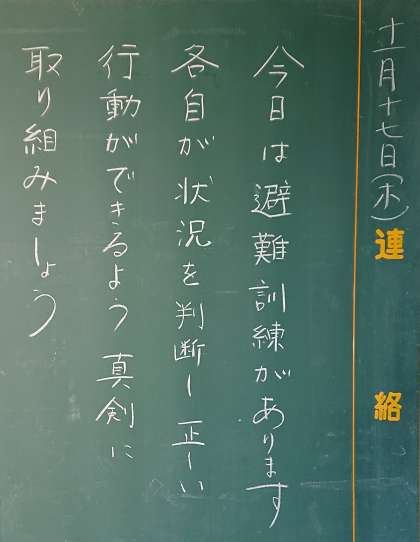 十一月十七日(木)
連絡
今日は避難訓練があります
各自が状況を判断し正しい
行動ができるよう真剣に
取り組みましょう